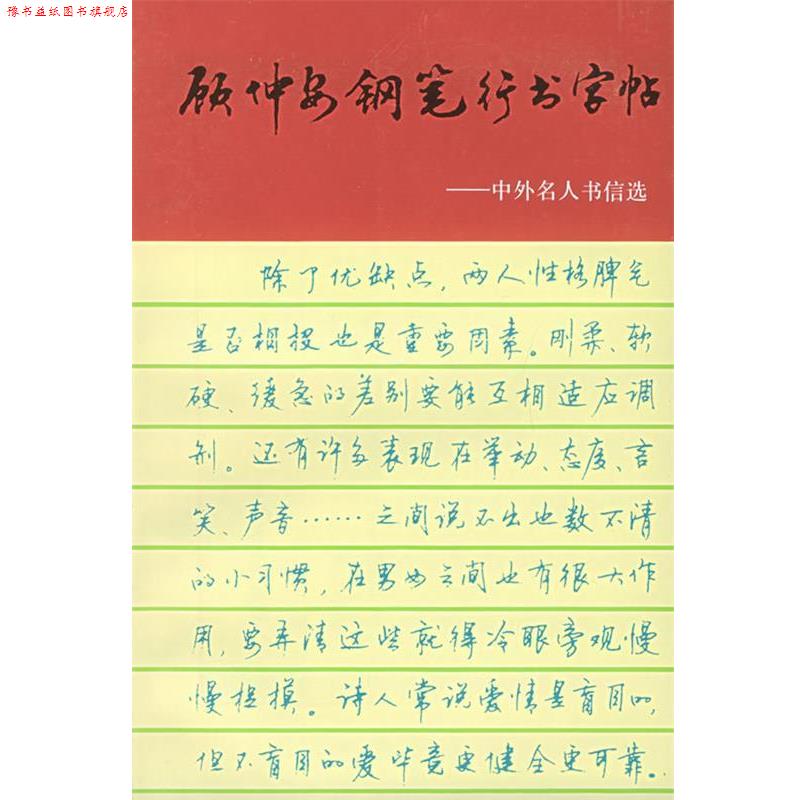 豫书益纸图书旗舰店
顾仲安钢笔行书字帖
——中外名人书信选
除了优缺点,两人性格脾气
是否相投也是重要因素。刚柔、软
硬、缓急的差别要能互相适应调
剂。还有许多表现在举动、态度、言
笑、声音……之间说不出也数不清
的小习惯,在男女之间也有很大作
用,要弄清这些就得冷眼旁观慢
慢捉摸。诗人常说爱情是盲目的,
但不盲目的爱毕竟更健全更可靠。